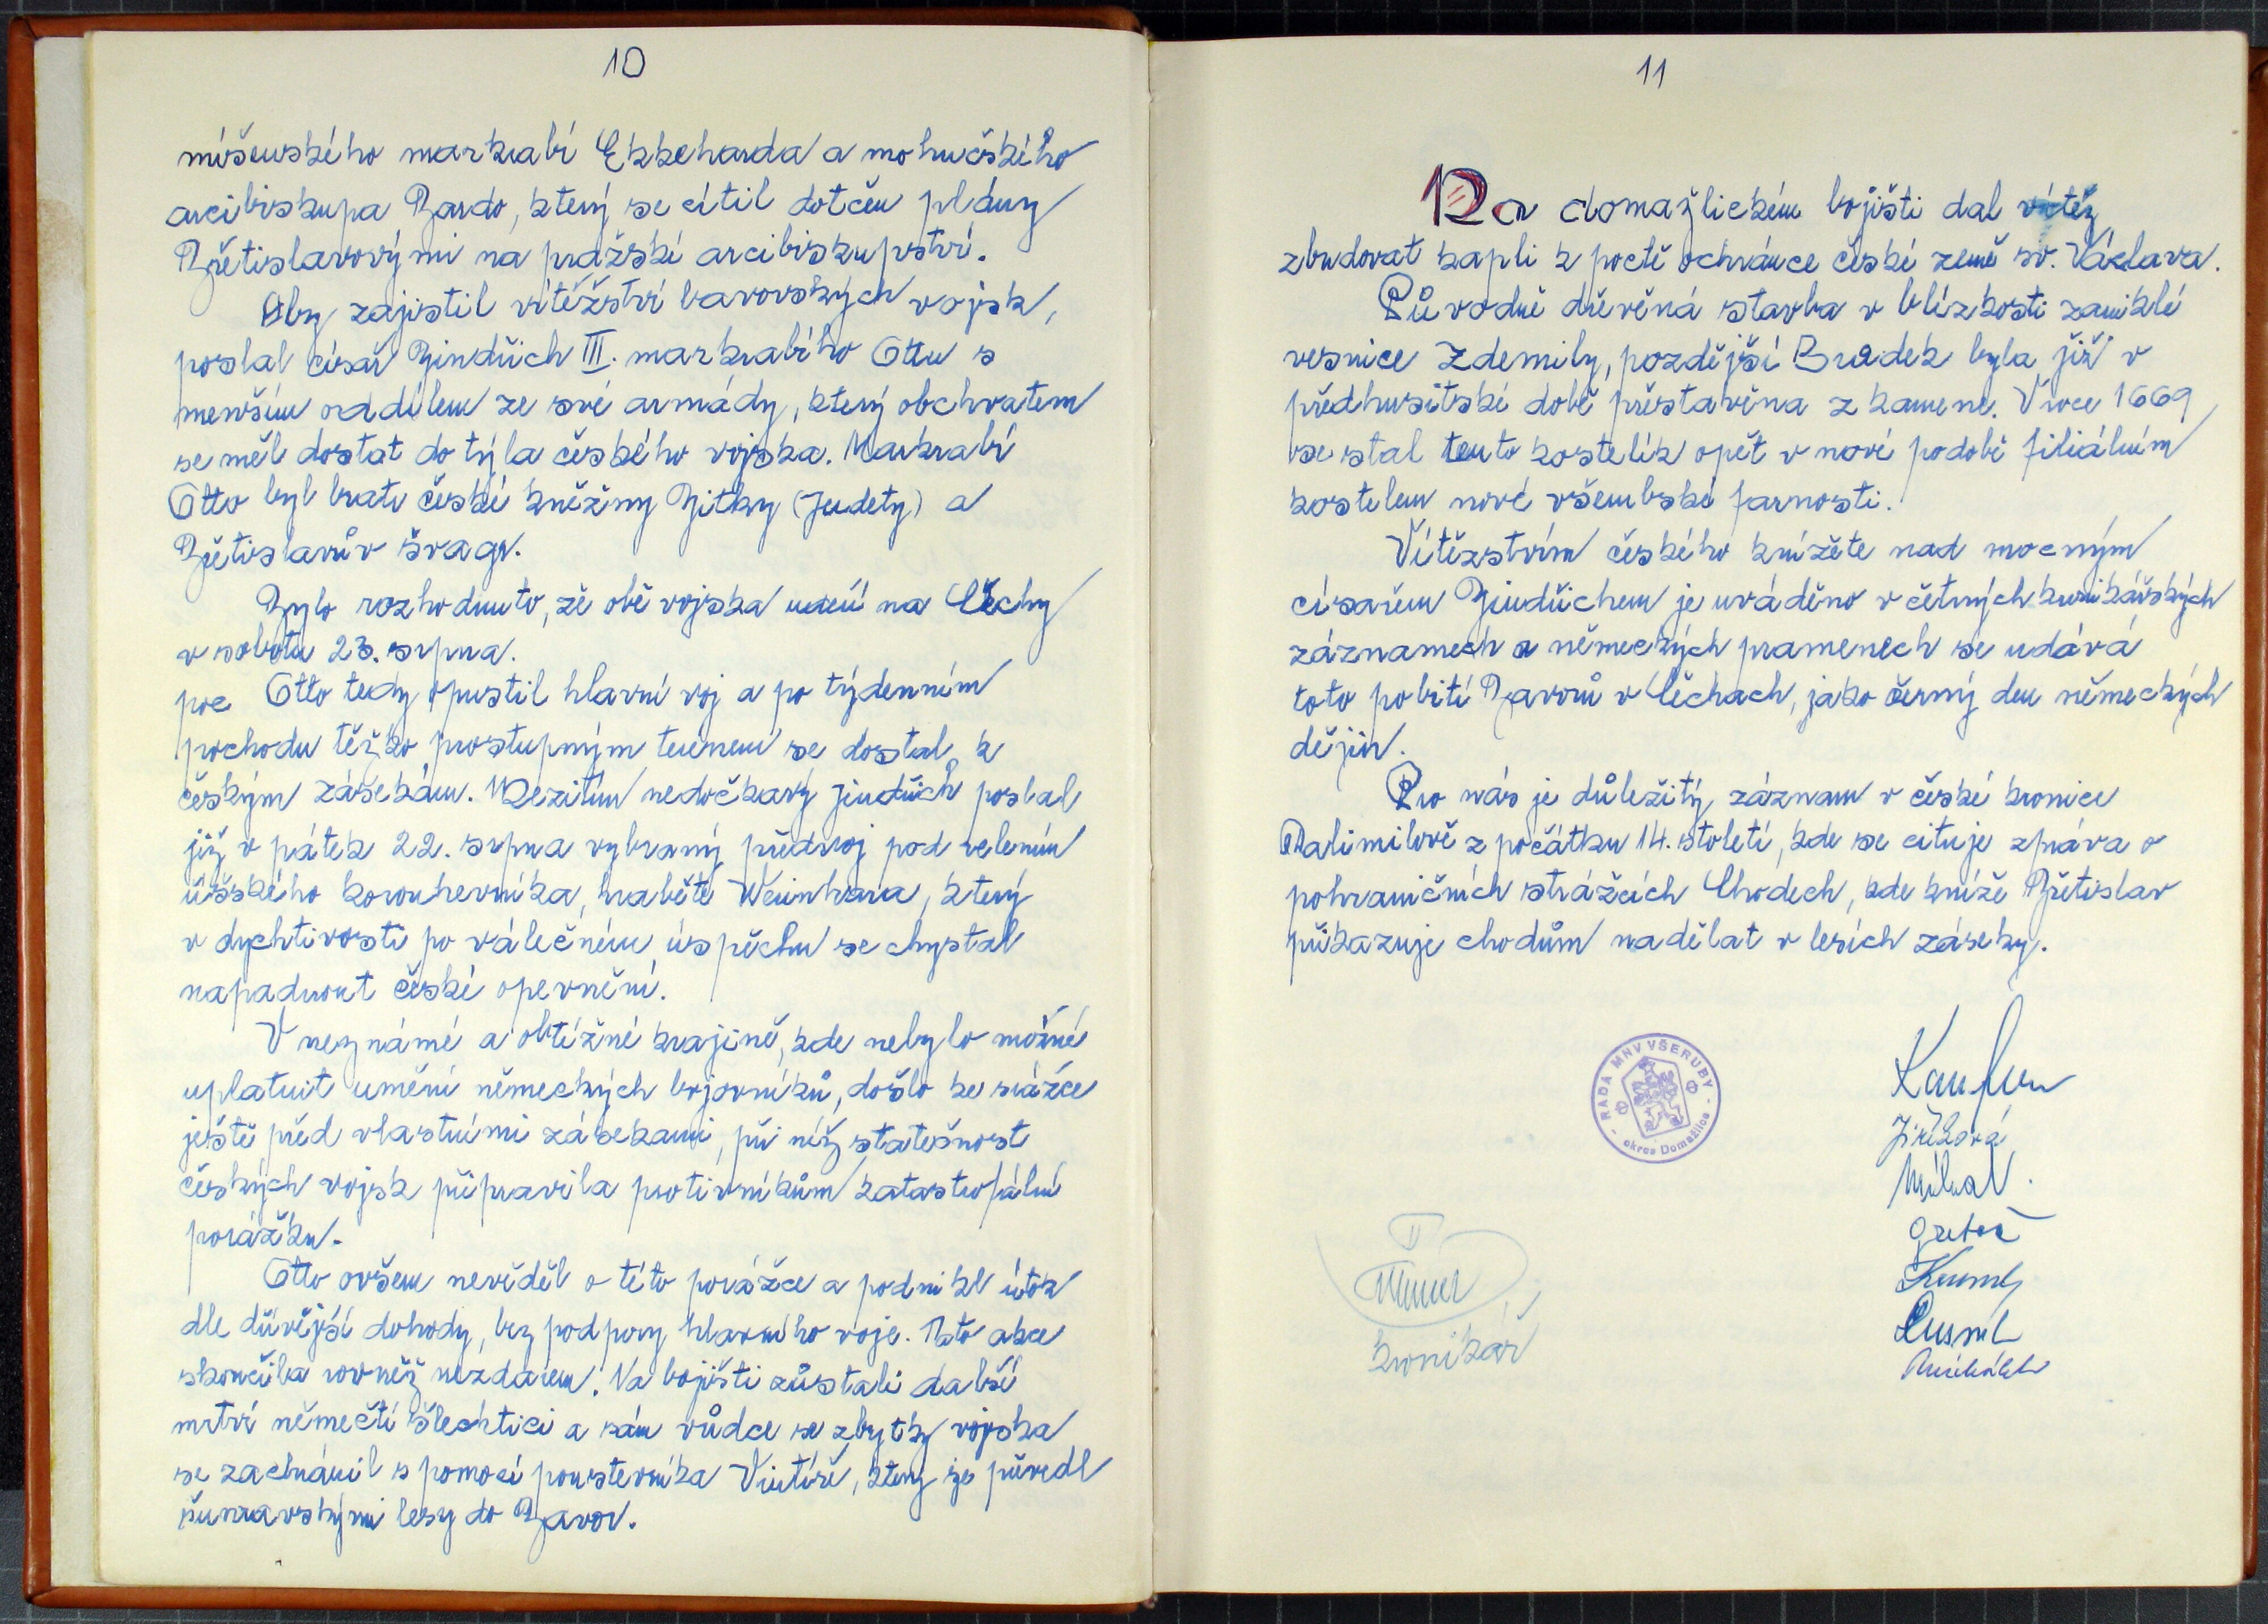 10
míšeňského markrabí Ekkeharda a mohučského
arcibiskupa Bardo, který se cítil dotčen plány
Břetislavovými na pražské arcibiskupství.
Aby zajistil vítěžství bavorských vojsk,
poslal císař Jindřich III. markrabího Ottu s
menším oddílem ze své armády, který obchvatem
se měl dostat do týla českého vojska. Markrabí
Otto byl bratr české kněžny Jitky (Judety) a
Břetislavův švagr.
Bylo rozhodnuto, že obě vojska udeří na Čechy
v sobotu 23. srpna.
poc Otto tedy opustil hlavní voj a po týdenním
pochodu těžko prostupným terénem se dostal k
českým zásekám. Mezitím nedočkavý Jindřich poslal
již v pátek 22. srpna vybraný předvoj pod velením
říšského korouhevníka, hraběte Weinhara, který
v dychtivosti po válečném úspěchu se chystal
napadnout české opevnění.
V neznámé a obtížné krajině, kde nebylo možné
uplatnit umění německých bojovníků, došlo ke srážce
ještě před vlastními zásekami, při níž statečnost
českých vojsk připravila protivníkům katastrofální
porážku.
Otto ovšem nevěděl o této porážce a podnikl útok
dle dřívější dohody, bez podpory hlavního voje. Tato akce
skončila rovněž nezdarem. Na bojišti zůstali další
mrtví němečtí šlechtici a sám vůdce se zbytky vojska
se zachránil s pomocí poustevníka Vintíře, který je převedl
šumavskými lesy do Bavor.
11
Na domažlickém bojišti dal vítěz
zbudovat kapli k poctě ochránce české země sv. Václava.
Původně dřevěná stavba v blízkosti zaniklé
vesnice Zdemily, pozdější Brůdek byla již v
předhusitské době přestavěna z kamene. V roce 1669
se stal tento kostelík opět v nové podobě filiálním
kostelem nové všerubské farnosti.
Vítězstvím českého knížete nad mocným
císařem Jindřichem je uváděno v četných kronikářských
záznamech a německých pramenech se udává
toto pobití Bavorů v Čechach, jako černý den německých
dějin.
Pro nás je důležitý záznam v české kronice
Dalimilově z počátku 14. století, kde se cituje zpráva o
pohraničních strážcích Chodech, kde kníže Břetislav
přikazuje chodům nadělat v lesích záseky.
RADA MNV VŠERUBY
okres Domažlice
Jiříková
kronikář